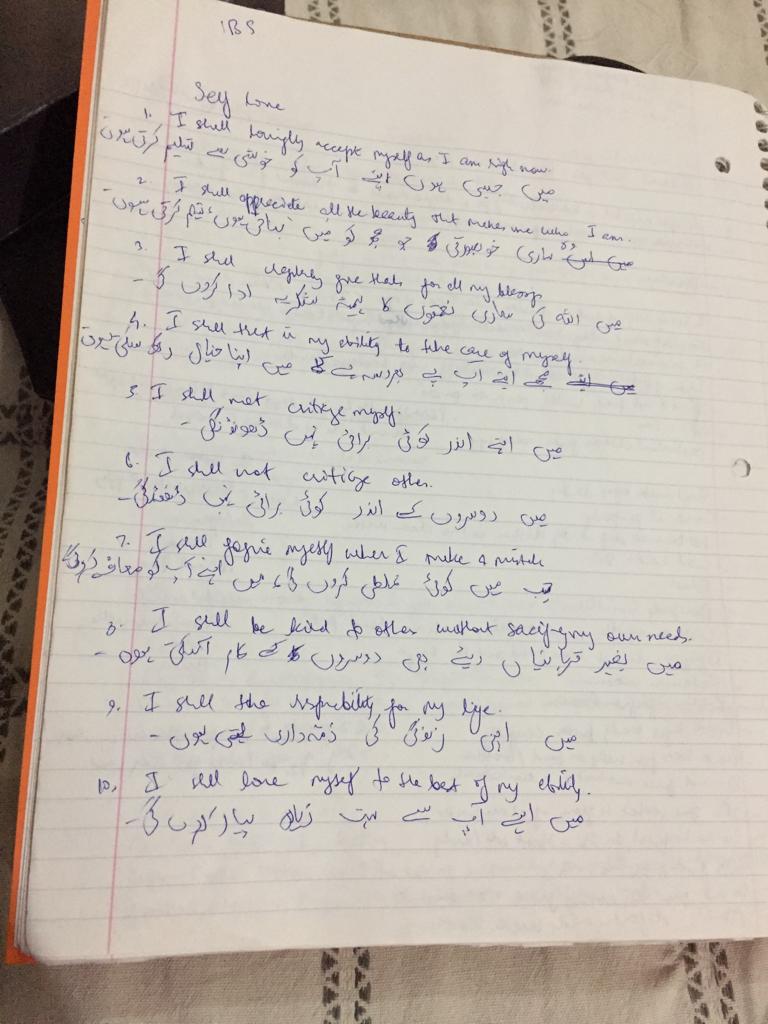 IBS
Self Love
1. I shall lovingly accept myself as I am right now.
میں جیسی ہوں اپنے آپ کو خوشی سے تسلیم کرتی ہوں
2. I shall appreciate all the beauty that makes me who I am.
ساری خوبصورتی جو مجھ کو میں بناتی ہوں، تسلیم کرتی ہوں۔
3. I shall give thanks for all my blessings
میں اللہ کی ساری نعمتوں کا ہمیشہ شکریہ ادا کروں گی۔
4. I shall trust in my ability to take care of myself.
مجھے اپنے آپ پے بھروسہ ہے میں اپنا خیال رکھ سکتی ہوں
5. I shall not critize myself.
میں اپنے اندر کوئی برائی نہیں ڈھونڈنگی۔
6. I shall not critize other.
میں دوسروں کے اندر کوئی برائی نہیں ڈھونڈنگی۔
7. I shall forgive myself when I make a mistake
جب میں کوئی غلطی کروں گی، میں اپنے آپ کو معاف کرونگی
8. I shall be kind to other without sacrifying my own needs.
میں بغیر قربانیاں دیئے بھی دوسروں کے کام آسکتی ہوں۔
9. I shall take responsibility for my life.
میں اپنی زندگی کی ذمہ داری لیتی ہوں۔
10. I shall love myself to the best of my ability.
میں اپنے آپ سے بہت زیادہ پیار کروں گی۔